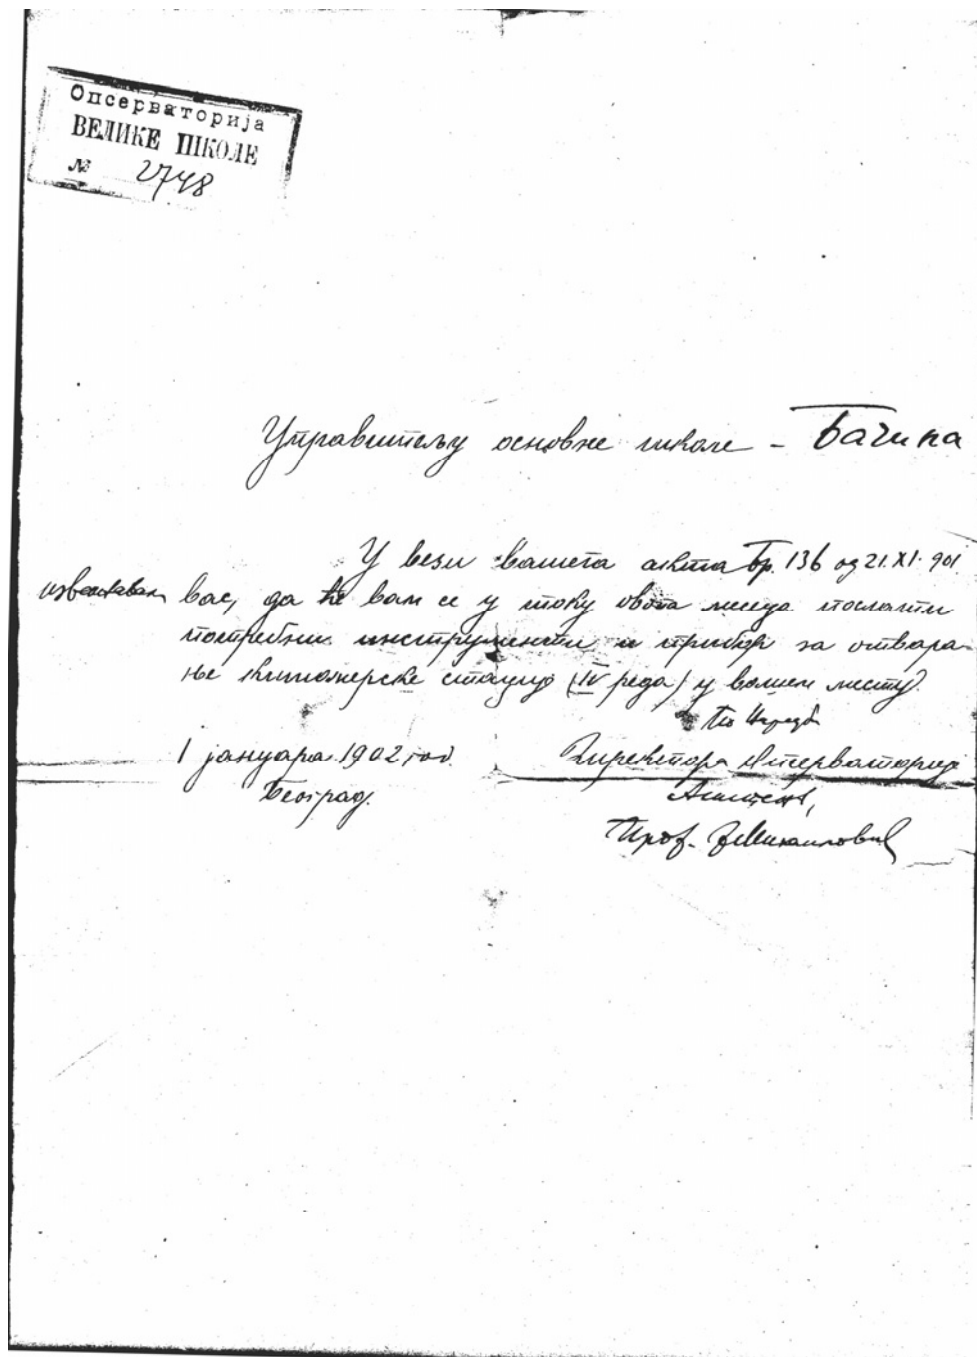 Опсерваторија
ВЕЛИКЕ ШКОЛЕ
№ 2748
Управитељу основне школе - Бачина
У вези вашега акта бр. 136 од 21.XI.901
извештавам вас, да ће вам се у току овога месеца послати
потребни инструменти и прибор за отвара-
ње кишомерске станице (IV реда) у вашем месту.
По наредби
1 јануара 1902 год. Директора Опсерваторије
Београд. Асистент,
Проф. Михаиловић